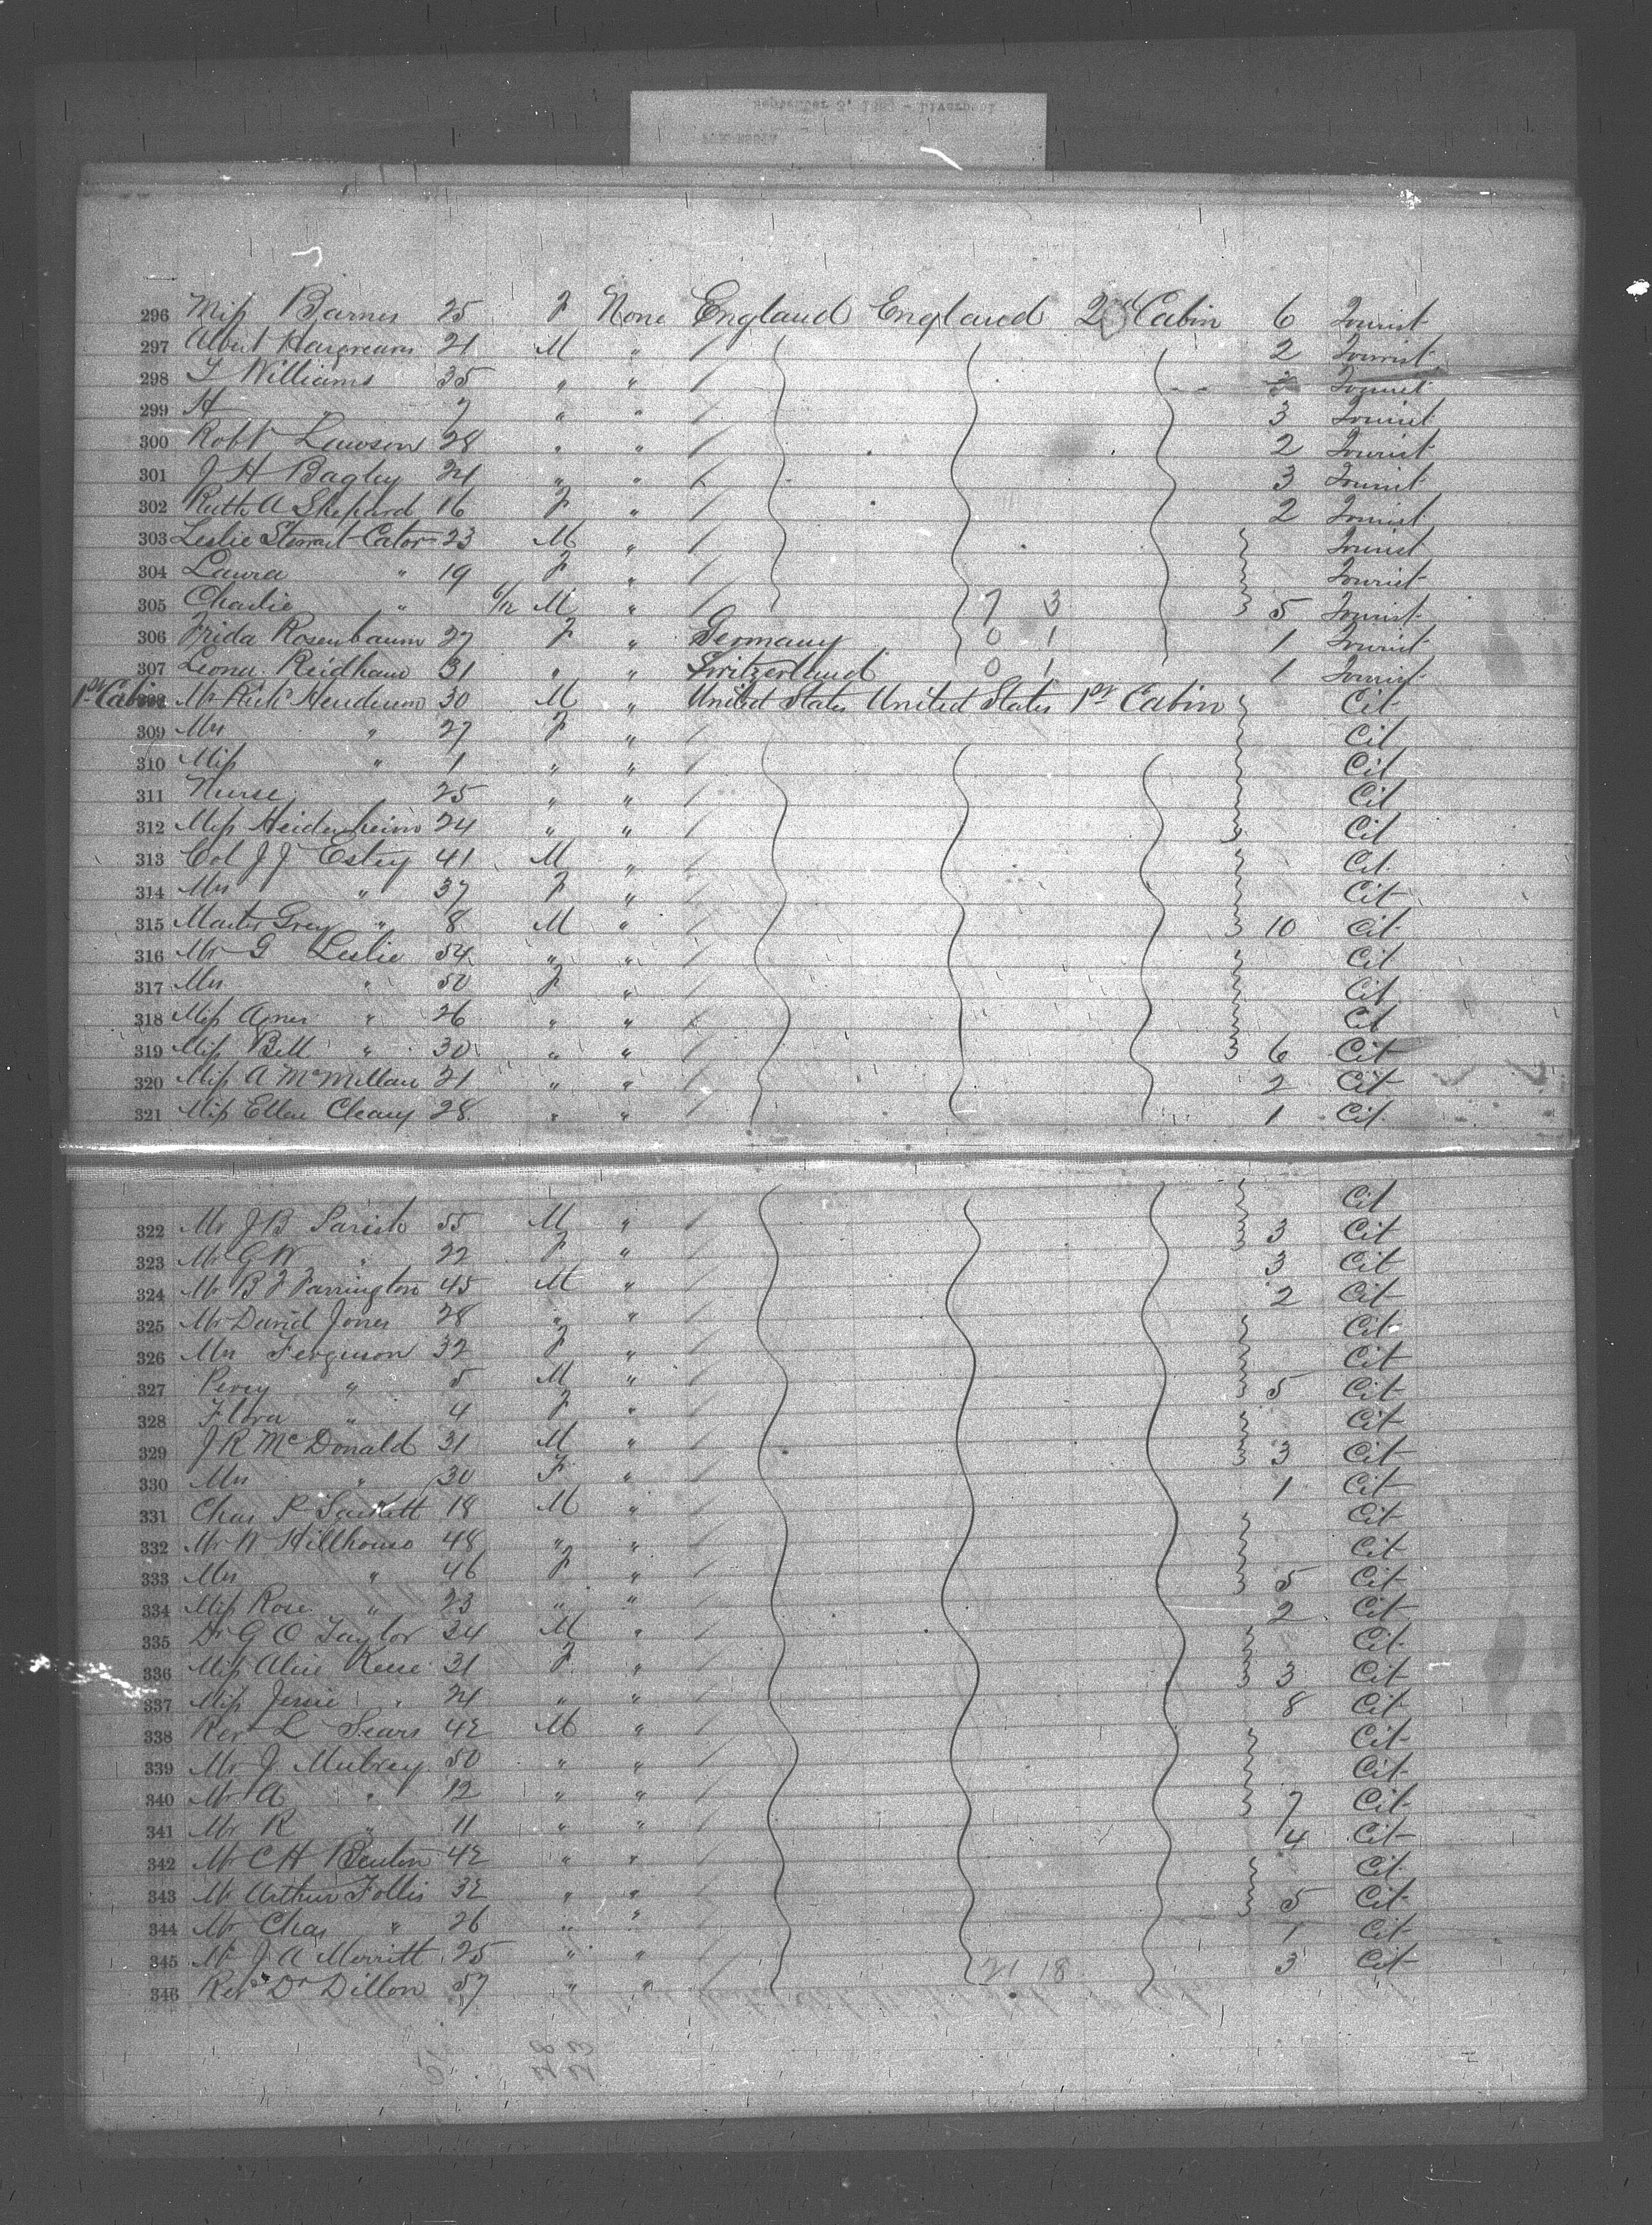 296 Miss Barnes 25 F None England England 2nd Cabin 6 Tourist
297 Albert Hargreaves 21 M " / 2 Tourist
298 T Williams 35 " " / Tourist
299 H 7 " " / 3 Tourist
300 Robt Lawson 28 " " / 2 Tourist
301 J H Bagley 24 " " / 3 Tourist
302 Ruth A Shepard 16 F " / 2 Tourist
303 Leslie Stewart-Cator 23 M " / Tourist
304 Laura " 19 F " / Tourist
305 Charlie " 6/12 M " / 7 3 5 Tourist
306 Frida Rosenbaum 27 F " Germany 0 1 1 Tourist
307 Leona 31 " " Switzerland 0 1 1 Tourist
1st Cabin Mr Richd Henderson 30 M " United States United States 1st Cabin Cit
309 Mrs " 27 F " / Cit
310 Miss " 1 " " / Cit
311 Nurse 25 " " / Cit
312 Miss Heidenheim 24 " " / Cit
313 Col J J Estey 41 M " / Cit
314 Mrs " 37 F " / Cit
315 Master Grey " 8 M " / 10 Cit
316 Mr G Leslie 54 " " / Cit
317 Mrs " 50 F " / Cit
318 Miss Agnes " 26 " " / Cit
319 Miss Bell " 30 " " / 6 Cit
320 Miss A McMillan 21 " " / 2 Cit
321 Miss Ellen Cleary 28 " " / 1 Cit
Cit
322 Mr J B Parish 55 M " / 3 Cit
323 Mr G W " 22 F " / 3 Cit
324 Mr B F Farrington 45 M " / 2 Cit
325 Mr David Jones 28 " " / Cit
326 Mrs Ferguson 32 F " / Cit
327 Percy " 5 M " / 5 Cit
328 Flora " 4 F " / Cit
329 J R McDonald 31 M " / 3 Cit
330 Mrs " 30 F " / 1 Cit
331 Chas P Sackett 18 M " / Cit
332 Mr W Hillhouse 48 " " / Cit
333 Mrs " 46 F " / 5 Cit
334 Miss Rose " 23 " " / 2 Cit
335 Dr G O Taylor 34 M " / Cit
336 Miss Alice Reese 31 F " / 3 Cit
337 Miss Jessie " 24 " " / 8 Cit
338 Rev L Sears 42 M " / Cit
339 Mr J 50 " " / Cit
340 Mr A " 12 " " / 7 Cit
341 Mr R " 11 " " / 4 Cit
342 Mr C H Benton 42 " " / Cit
343 Mr Arthur Follis 32 " " / 5 Cit
344 Mr Chas " 26 " " / 1 Cit
345 Mr J A Merritt 25 " " / 21 18 3 Cit
346 Rev Dr Dillon 57 " " /